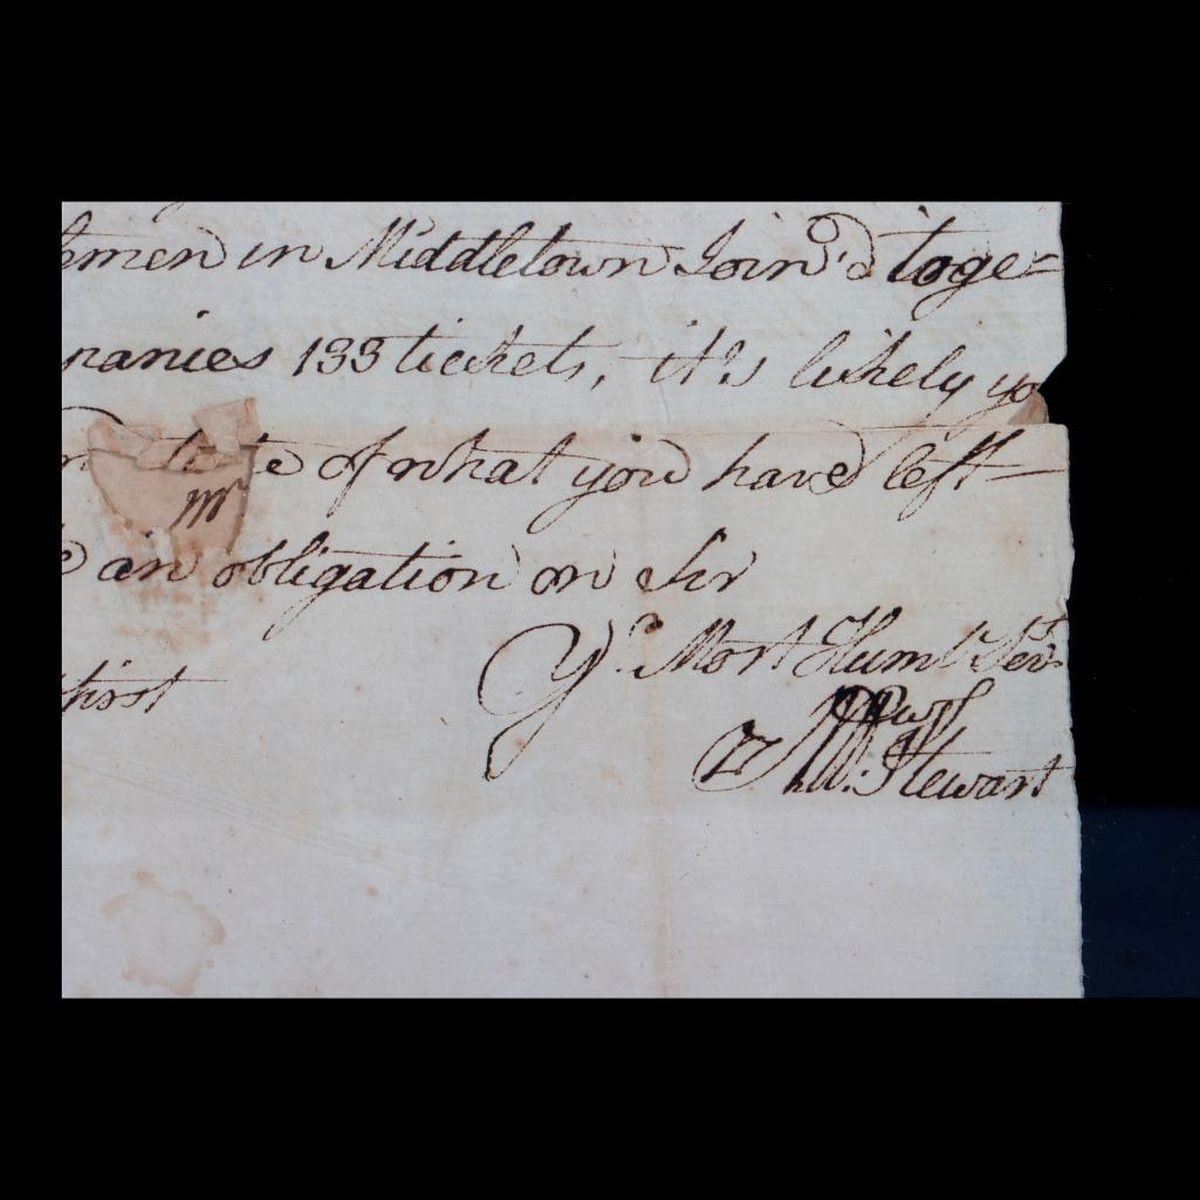 temen in Middletown Join'd toge-
panies 133 tickets, it's likely yo
te of what you have left
Mr
an obligation on Sir
Yr. Most Huml Servt
first
Stewart